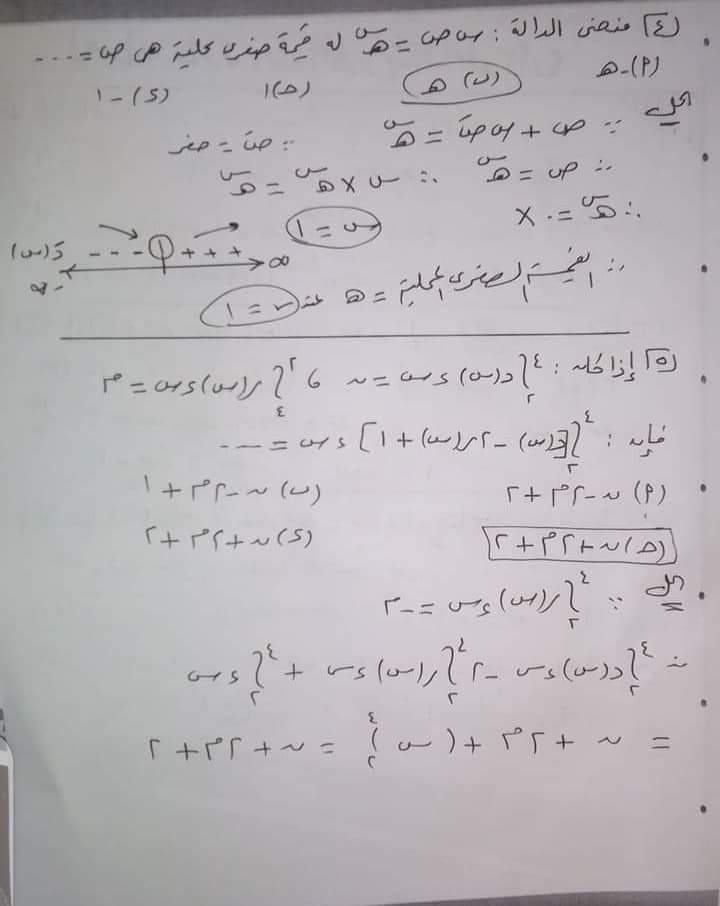 [٤] منحنى الدالة : س ص = هـ^س له قيمة صغرى محلية هى ص = ...
(P) -هـ (ب) هـ (حـ) ١ (د) -١
الحل ∵ ص + س صَ = هـ^س ∵ صَ = صفر
∴ ص = هـ^س ∴ س × هـ^س = هـ^س
∴ هـ^س = ٠ × س = ١
دَ(س) - - - ١ + + +
-∞ ∞
∴ القيمة الصغرى المحلية = هـ عند س = ١
[٥] إذا كان : ∫٢^٤ د(س) ءس = ن ، ∫٤^٢ ر(س) ءس = م
فإن : ∫٢^٤ [د(س) - ٢ر(س) + ١] ءس = ...
(P) ن - ٢م + ٢ (ب) ن - ٢م + ١
(حـ) ن + ٢م + ٢ (د) ن + ٢م + ٢
الحل ∵ ∫٢^٤ ر(س) ءس = -م
∴ ∫٢^٤ د(س) ءس - ٢ ∫٢^٤ ر(س) ءس + ∫٢^٤ ءس
= ن + ٢م + (س)٢^٤ = ن + ٢م + ٢